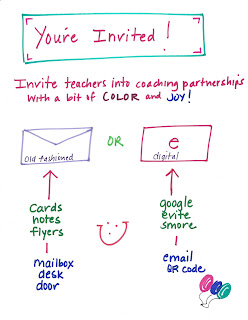 You're Invited!
Invite teachers into coaching partnerships
With a bit of COLOR and JOY!
Old fashioned
OR
e
digital
Cards
notes
flyers
google
evite
smore
mailbox
desk
door
email
QR code